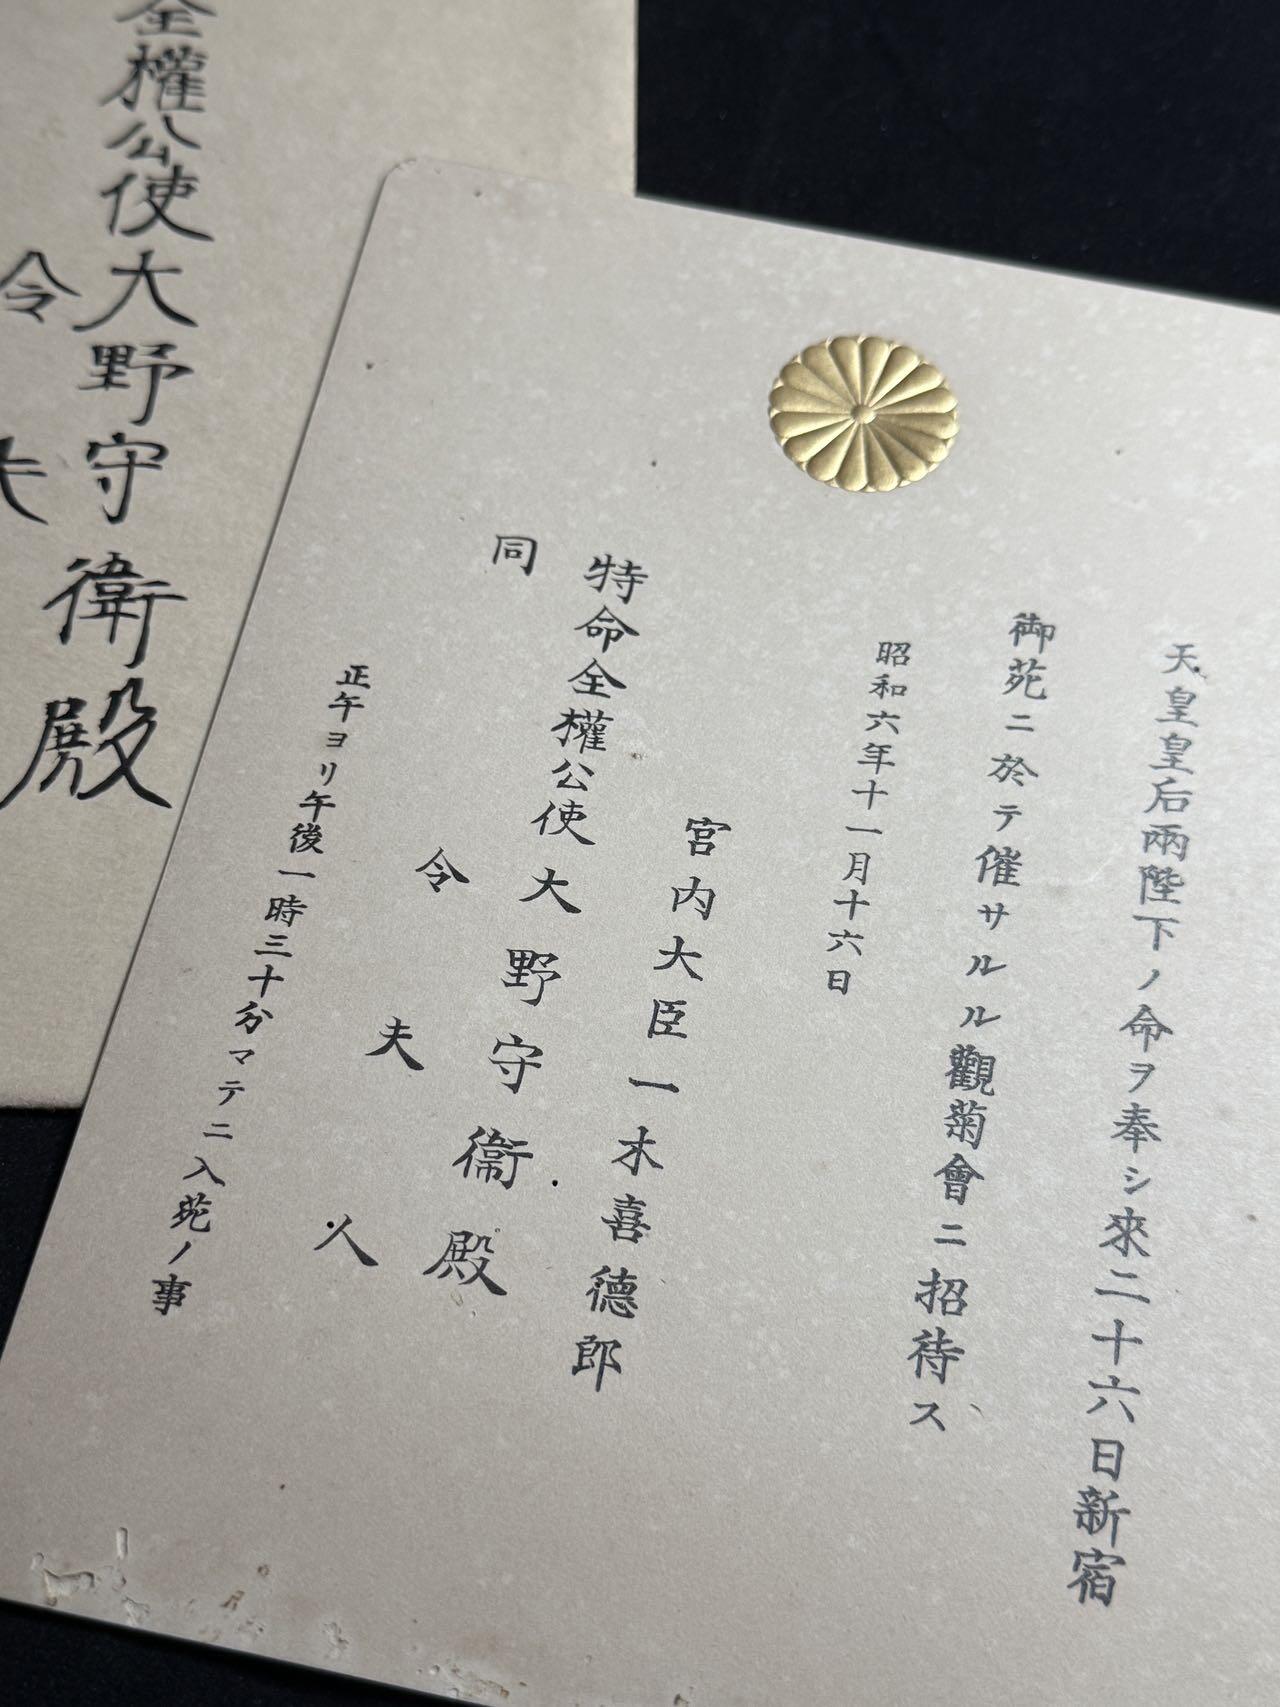 天皇皇后兩陛下ノ命ヲ奉シ來二十六日新宿
御苑ニ於テ催サルル觀菊會ニ招待ス
昭和六年十一月十六日
宮内大臣一木喜德郎
特命全權公使大野守衞殿
同令夫人
正午ヨリ午後一時三十分マテニ入苑ノ事
全權公使大野守衛殿
令夫